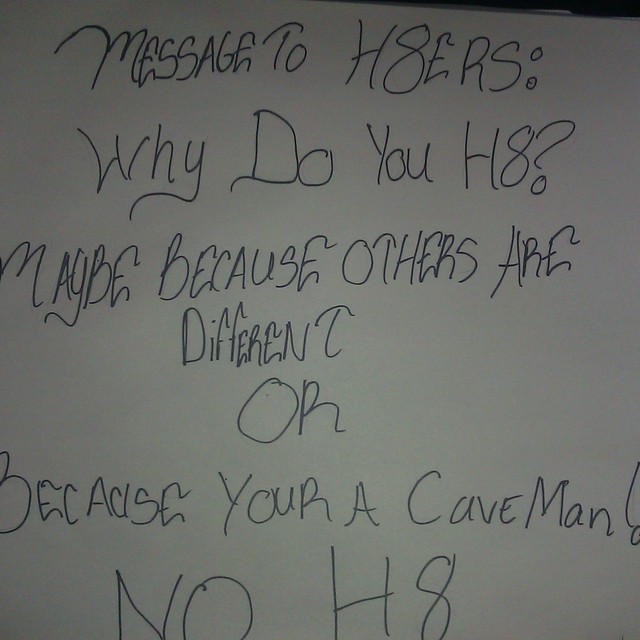 MESSAGE TO H8ERS:
Why Do You H8?
MAYBE BECAUSE OTHERS ARE
DiffERENT
OR
BECAUSE YOUR A CAVEMan!
NO H8